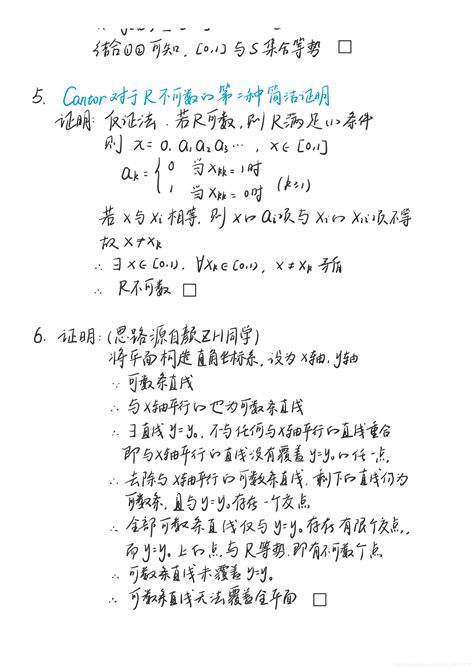 结合①②可知, [0,1] 与 S 集合等势 □
5. Cantor 对于 R 不可数的第二种简洁证明
证明: 反证法. 若R可数, 则 R 满足 (1) 条件
则 x = 0. a₁ a₂ a₃ ⋯, x ∈ [0,1]
aₖ = { 0 当 xₖₖ = 1 时
1 当 xₖₖ = 0 时 (k≥1)
若 x 与 xᵢ 相等, 则 x 的 aᵢ 项与 xᵢ 的 xᵢᵢ 项不等
故 x ≠ xₖ
∴ ∃ x ∈ [0,1), ∀xₖ ∈ [0,1), x ≠ xₖ 矛盾
∴ R不可数 □
6. 证明: (思路源自颜ZH同学)
将平面构造直角坐标系, 设为 x轴, y轴
∵ 可数条直线
∴ 与x轴平行的也为可数条直线
∴ ∃ 直线 y=y₀, 不与任何与x轴平行的直线重合
即与x轴平行的直线没有覆盖 y=y₀ 的任一点
∴ 去除与x轴平行的可数条直线, 剩下的直线仍为
可数条, 且与 y=y₀ 存在一个交点
∴ 全部可数条直线仅与 y=y₀ 存在有限个交点,
而 y=y₀ 上的点与 R 等势, 即有不可数个点
∴ 可数条直线未覆盖 y=y₀
∴ 可数条直线无法覆盖全平面 □